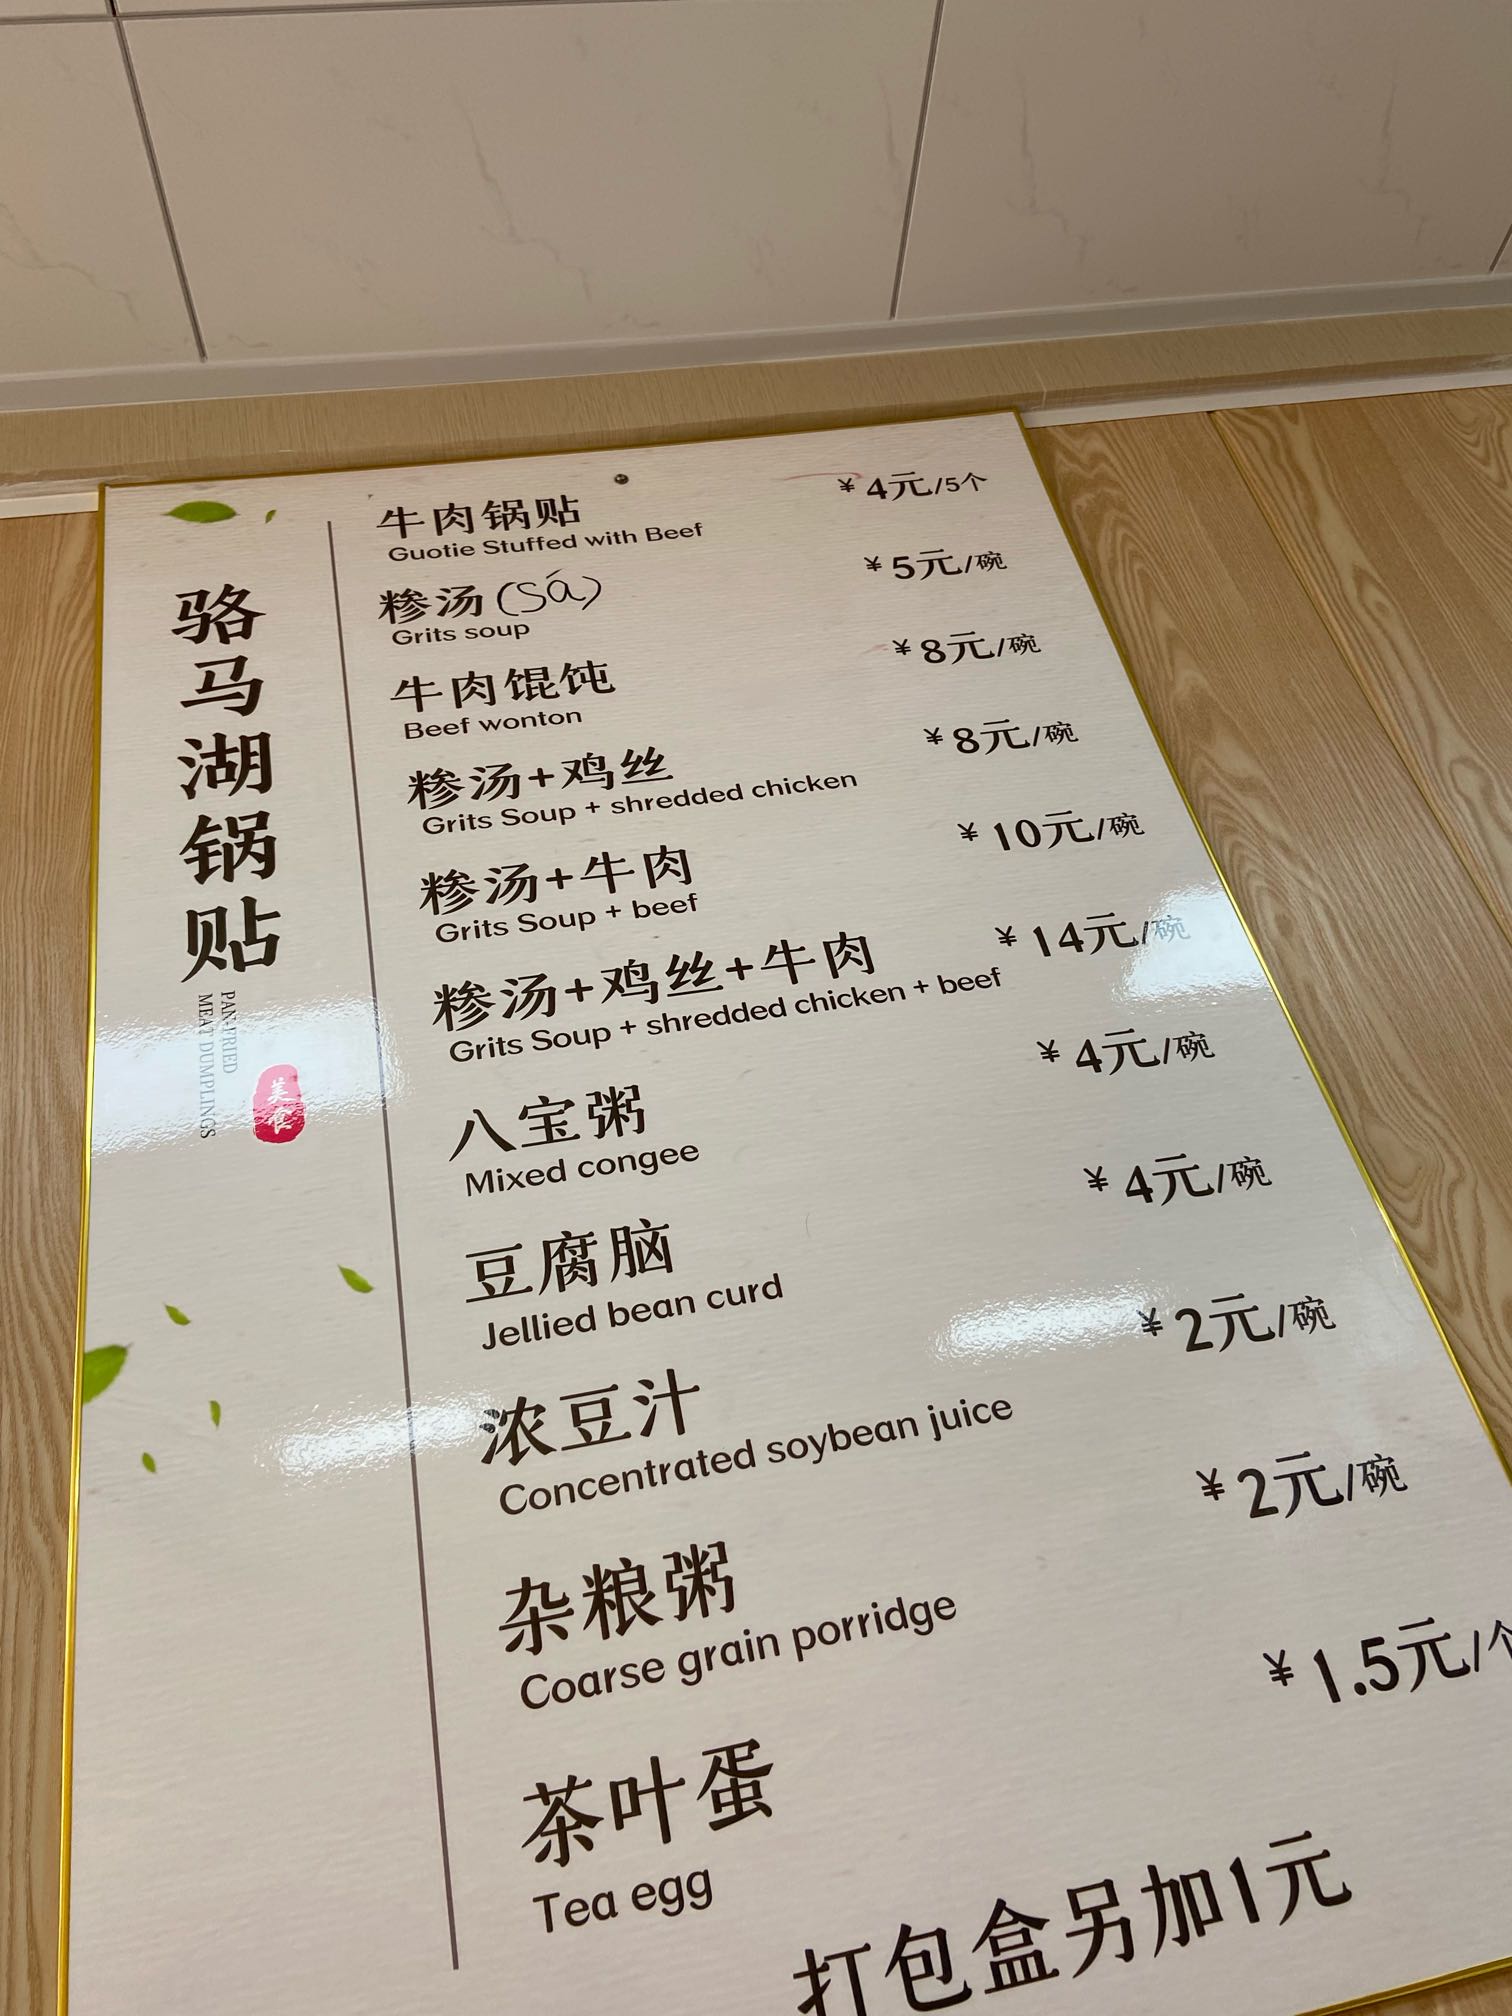 骆马湖锅贴
PAN-FRIED
MEAT DUMPLINGS
美食
牛肉锅贴 ¥4元/5个
Guotie Stuffed with Beef
糁汤(sá) ¥5元/碗
Grits soup
牛肉馄饨 ¥8元/碗
Beef wonton
糁汤+鸡丝 ¥8元/碗
Grits Soup + shredded chicken
糁汤+牛肉 ¥10元/碗
Grits Soup + beef
糁汤+鸡丝+牛肉 ¥14元/碗
Grits Soup + shredded chicken + beef
八宝粥 ¥4元/碗
Mixed congee
豆腐脑 ¥4元/碗
Jellied bean curd
浓豆汁 ¥2元/碗
Concentrated soybean juice
杂粮粥 ¥2元/碗
Coarse grain porridge
茶叶蛋 ¥1.5元/个
Tea egg
打包盒另加1元